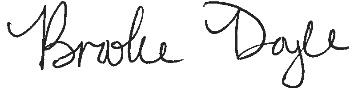 Brooke Doyle